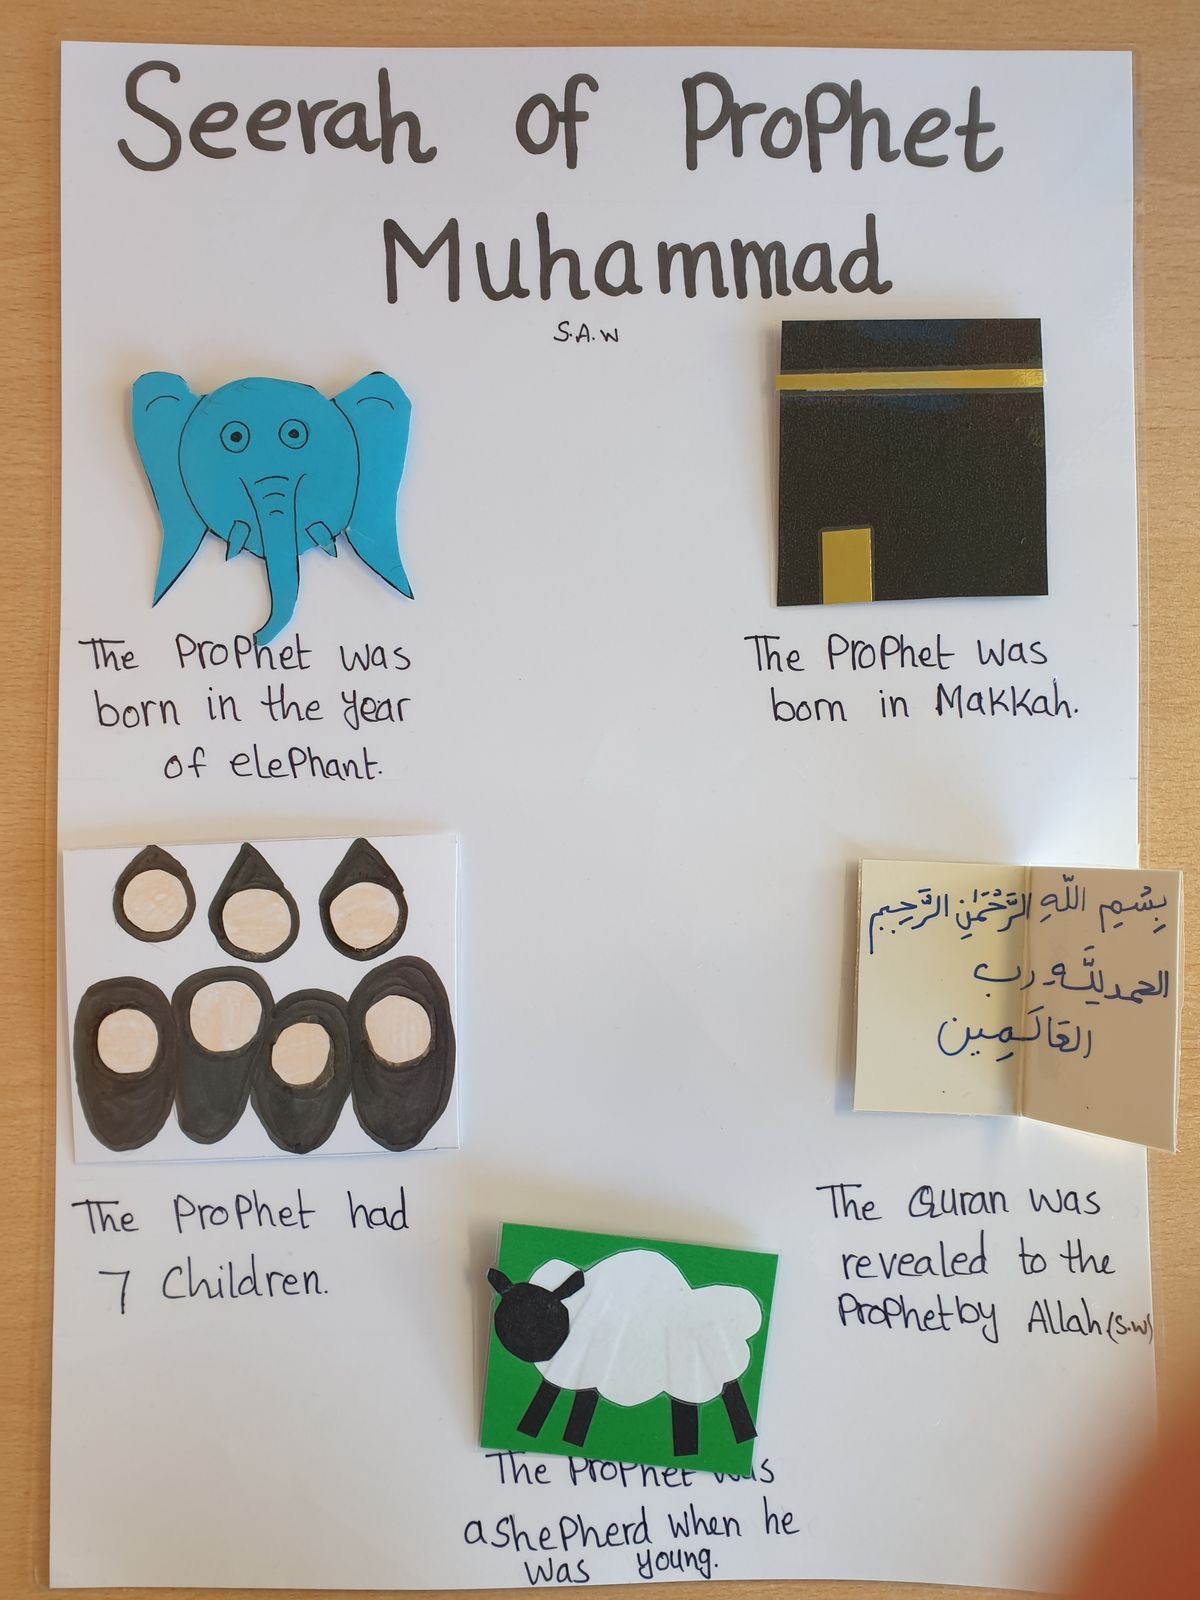 Seerah of Prophet
Muhammad
S.A.W
The Prophet was
born in the year
of elephant.
The Prophet was
born in Makkah.
بِسْمِ اللّٰهِ الرَّحْمٰنِ الرَّحِيمِ
الحمد لِلَّهِ رب
العَالَمِين
The Prophet had
7 Children.
The Quran was
revealed to the
Prophet by Allah (S.W)
The Prophet was
a shepherd when he
was young.